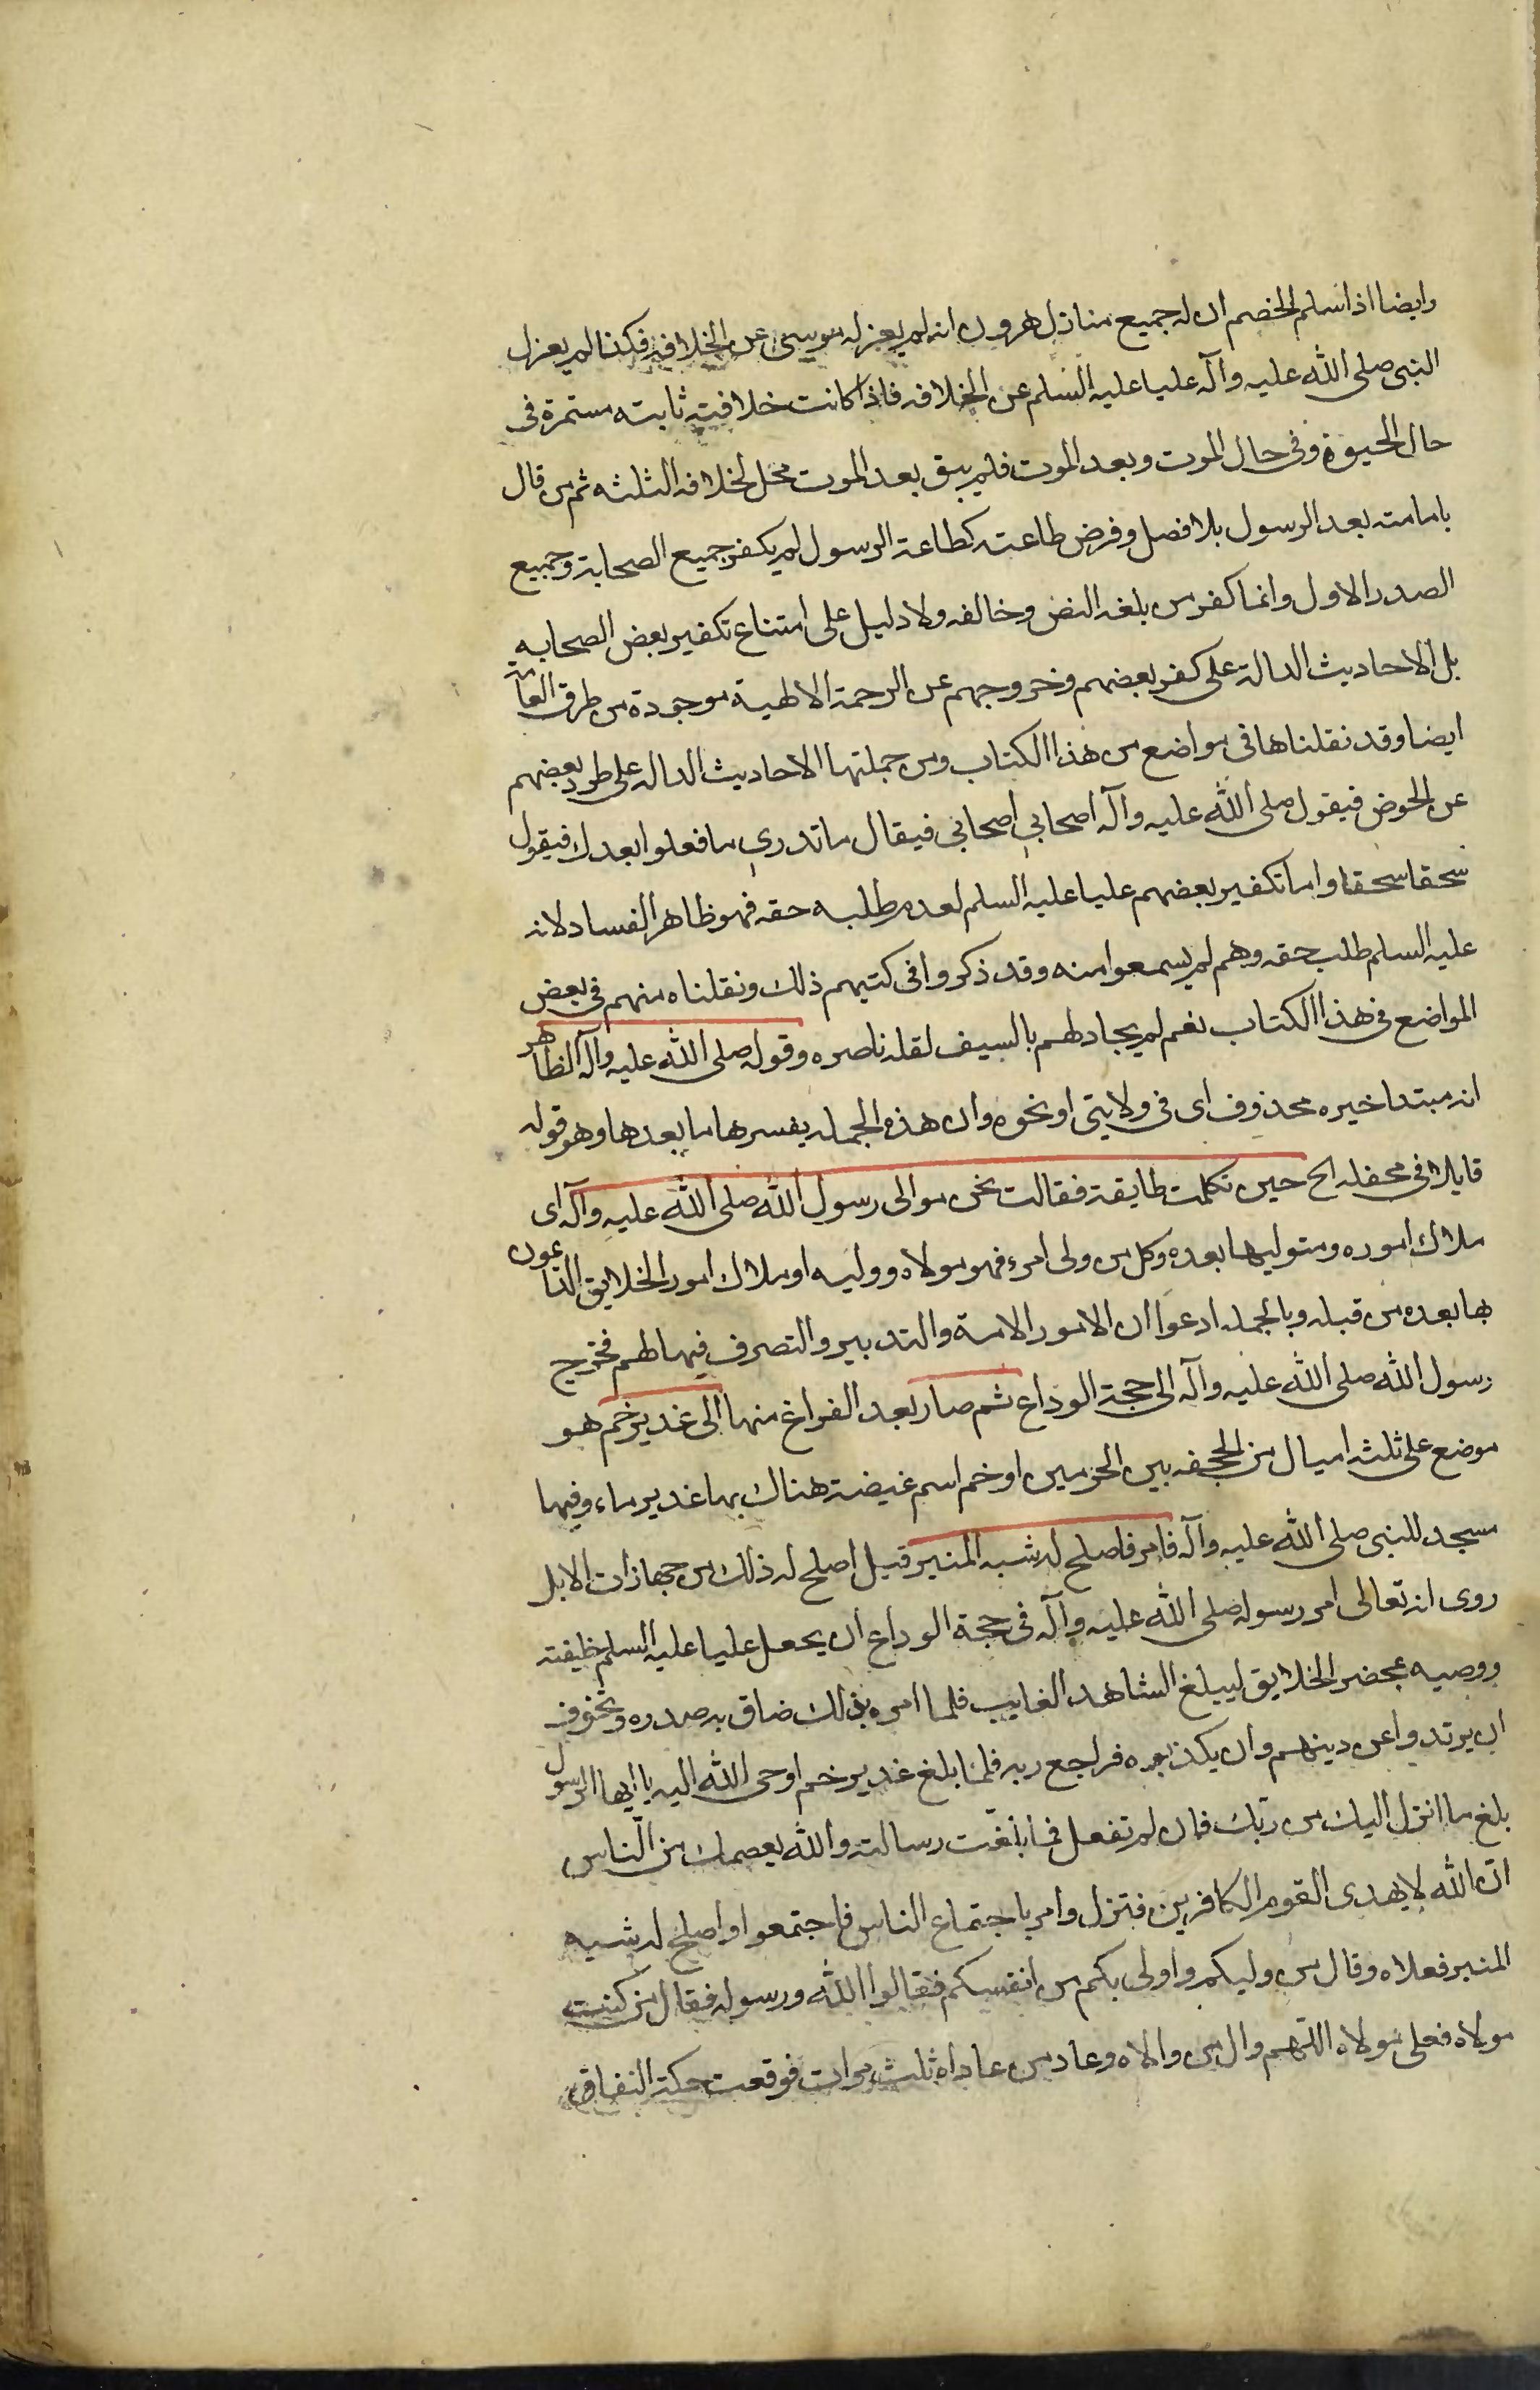 وايضا اذا سلم الخصم ان له جميع منازل هرون انه لم يعزله موسى عن الخلافة فكذا لم يعزل
النبى صلى الله عليه وآله عليا عليه السلم عن الخلافه فاذا كانت خلافته ثابته مستمرة فى
حال الحيوة وفى حال الموت وبعد الموت فلم يبق بعد الموت محل لخلافه الثلثه ثم من قال
بامامته بعد الرسول بلا فصل وفرض طاعته كطاعة الرسول لم يكفر جميع الصحابة وجميع
الصدر الاول وانما كفر من بلغه النص وخالفه ولا دليل على امتناع تكفير بعض الصحابه
بل الاحاديث الدالة على كفر بعضهم وخروجهم عن الرحمة الالهية موجودة من طرق العامة
ايضا وقد نقلناها فى مواضع من هذا الكتاب ومن جملتها الاحاديث الداله على طرد بعضهم
عن الحوض فيقول صلى الله عليه وآله اصحابي اصحابى فيقال ما تدري ما فعلوا بعدك فيقول
سحقا سحقا واما تكفير بعضهم عليا عليه السلم لعدم طلبه حقه فهو ظاهر الفساد لانه
عليه السلم طلب حقه وهم لم يسمعوا منه وقد ذكروا فى كتبهم ذلك ونقلناه منهم فى بعض
المواضع فى هذا الكتاب نعم لم يجادلهم بالسيف لقله ناصره وقوله صلى الله عليه وآله الظاهر
انه مبتدا خبره محذوف اى فى ولايتى او نحوه وان هذه الجمله يفسرها ما بعدها وهو قوله
قايلا فى محفله الخ حين تكلمت طايفة فقالت نحن موالى رسول الله صلى الله عليه وآله اى
ملاك اموره ومتوليها بعده وكل من ولى امرء فهو مولاه ووليه او ملاك امور الخلايق الناعون
بها بعده من قبله وبالجمله ادعوا ان الامور الامة والتدبير والتصرف فيها لهم فخرج
رسول الله صلى الله عليه وآله الى حجة الوداع ثم صار بعد الفراغ منها الى غدير خم هو
موضع على ثلثه اميال من الجحفه بين الحرمين او خم اسم غيضة هناك بها غدير ماء وفيها
مسجد للنبى صلى الله عليه وآله فامر فاصلح له شبه المنبر قيل اصلح له ذلك من جهازات الابل
روى انه تعالى امر رسوله صلى الله عليه وآله فى حجة الوداع ان يجعل عليا عليه السلم خليفته
ووصيه بمحضر الخلايق ليبلغ الشاهد الغايب فلما امره بذلك ضاق به صدره وتخوف
ان يرتدوا عن دينهم وان يكذبوه فراجع ربه فلما بلغ غدير خم اوحى الله اليه يا ايها الرسول
بلغ ما انزل اليك من ربّك فان لم تفعل فما بلّغت رسالته والله يعصمك من النّاس
انّ الله لا يهدى القوم الكافرين فنزل وامر باجتماع الناس فاجتمعوا واصلح له شبه
المنبر فعلاه وقال من وليكم واولى بكم من انفسكم فقالوا الله ورسوله فقال من كنت
مولاه فعلى مولاه اللّهم وال من والاه وعاد من عاداه ثلث مرات فوقعت حكة النفاق